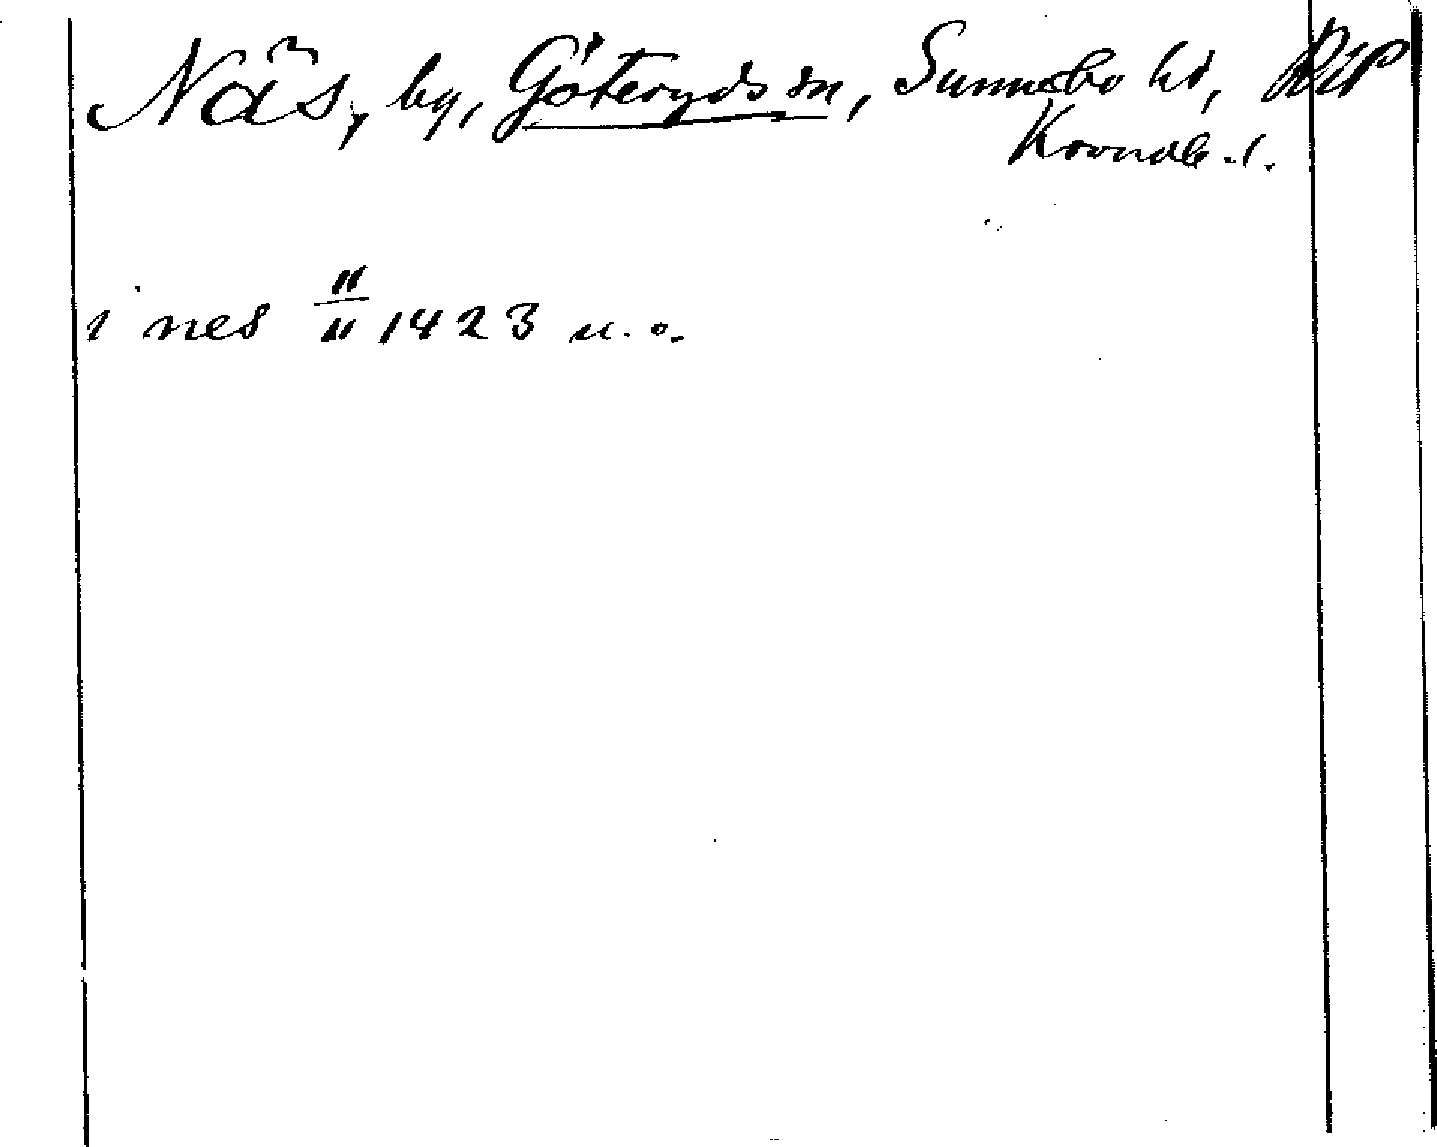 Näs, by, Göteryds sn, Sunnerbo hd, RAP
Kronob. l.
i nes 11/11 1423 u. o.